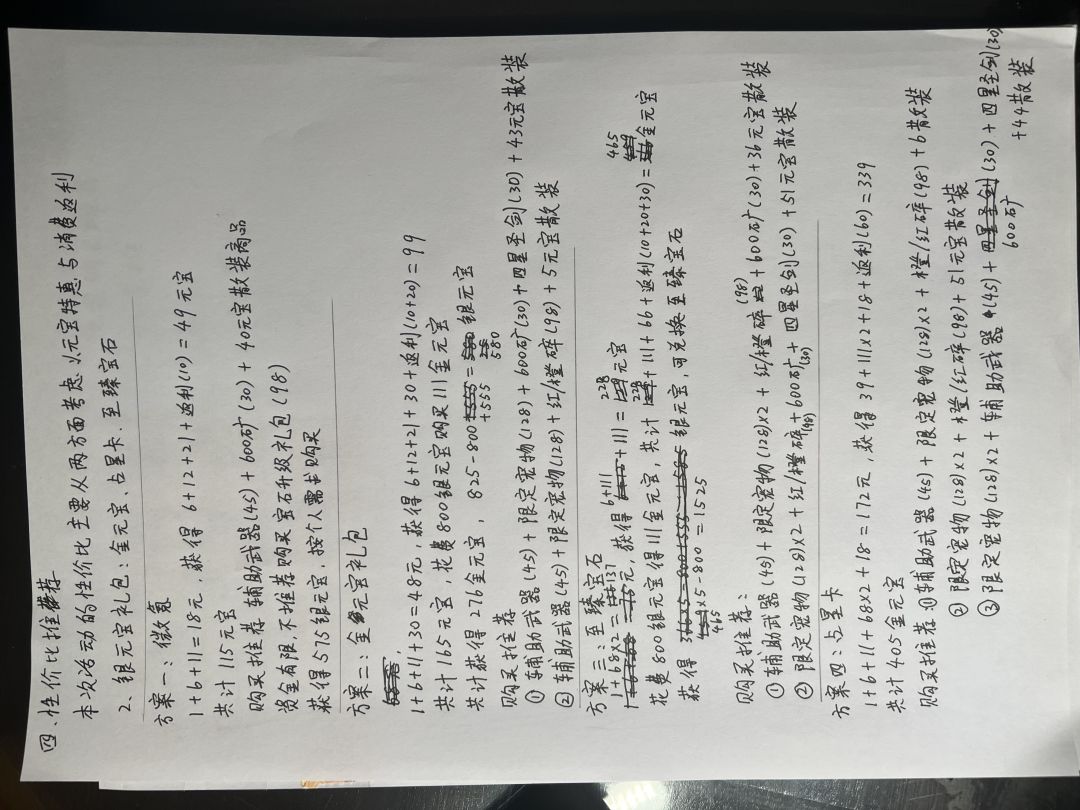 四、性价比推荐
本次活动的性价比主要从两方面考虑 1、元宝特惠与消费返利
2、银元宝礼包：金元宝、占星卡、至臻宝石
方案一：微氪
1+6+11=18元，获得 6+12+21+返利(10)=49元宝
共计115元宝
购买推荐 辅助武器(45)+600矿(30)+40元宝散装商品
资金有限，不推荐购买宝石升级礼包(98)
获得575银元宝，按个人需求购买
方案二：金元宝礼包
1+6+11+30=48元，获得6+12+21+30+返利(10+20)=99
共计165元宝，花费800银元宝购买111金元宝
共计获得276金元宝，825-800+555=580银元宝
购买推荐
①辅助武器(45)+限定宠物(128)+600矿(30)+四星圣剑(30)+43元宝散装
②辅助武器(45)+限定宠物(128)+红/橙碎(98)+5元宝散装
方案三：至臻宝石
1+68×2=137元，获得6+111+111=228元宝
花费800银元宝得111金元宝，共计228+111+66+返利(10+20+30)=465金元宝
获得 银元宝，可兑换至臻宝石
465×5-800=1525
购买推荐：
①辅助武器(45)+限定宠物(128)×2+红/橙碎(98)+600矿(30)+36元宝散装
②限定宠物(128)×2+红/橙碎(98)+600矿(30)+四星圣剑(30)+51元宝散装
方案四：占星卡
1+6+11+68×2+18=172元，获得39+111×2+18+返利(60)=339
共计405金元宝
购买推荐①辅助武器(45)+限定宠物(128)×2+橙/红碎(98)+6散装
②限定宠物(128)×2+橙/红碎(98)+51元宝散装
③限定宠物(128)×2+辅助武器(45)+600矿(30)+四星圣剑(30)
+44散装